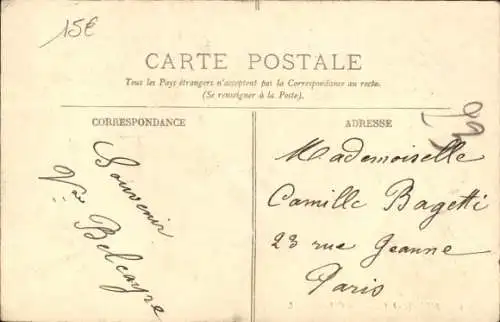 15€
CARTE POSTALE
Tous les Pays étrangers n'acceptent pas la Correspondance au recto.
(Se renseigner à la Poste).
CORRESPONDANCE
Souvenir
Vve Belcayre
ADRESSE
Mademoiselle
Camille Bagetti
23 rue Jeanne
Paris